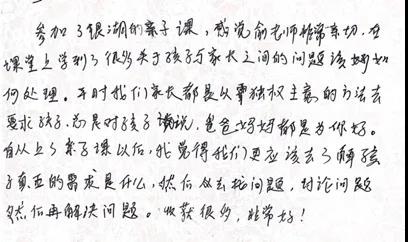 参加了银湖的亲子课，感觉俞老师非常亲切，在
课堂上学到了很多关于孩子与家长之间的问题该如
何处理。平时我们家长都是以独权主义的方法去
要求孩子，总是对孩子说，爸爸妈妈都是为你好。
自从上了亲子课以后，我觉得我们更应该去了解孩
子真正的需求是什么，然后从去找问题，讨论问题
然后再解决问题。收获很多，非常好！